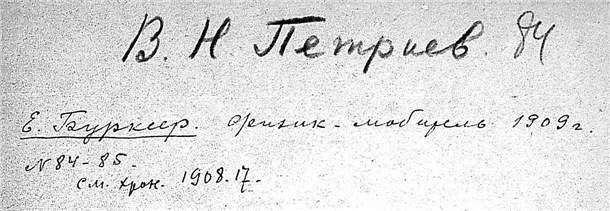 В. Н Петриев. 84
Е. Бурксер. Физик-любитель 1909 г.
N 84-85.
см. хрон. 1908.17.